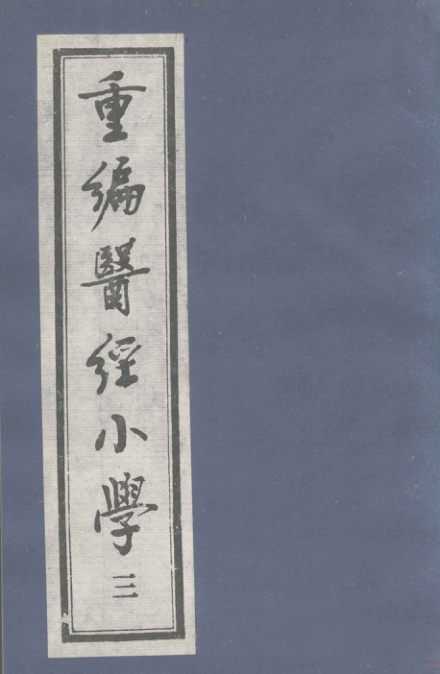 重編醫經小學 三